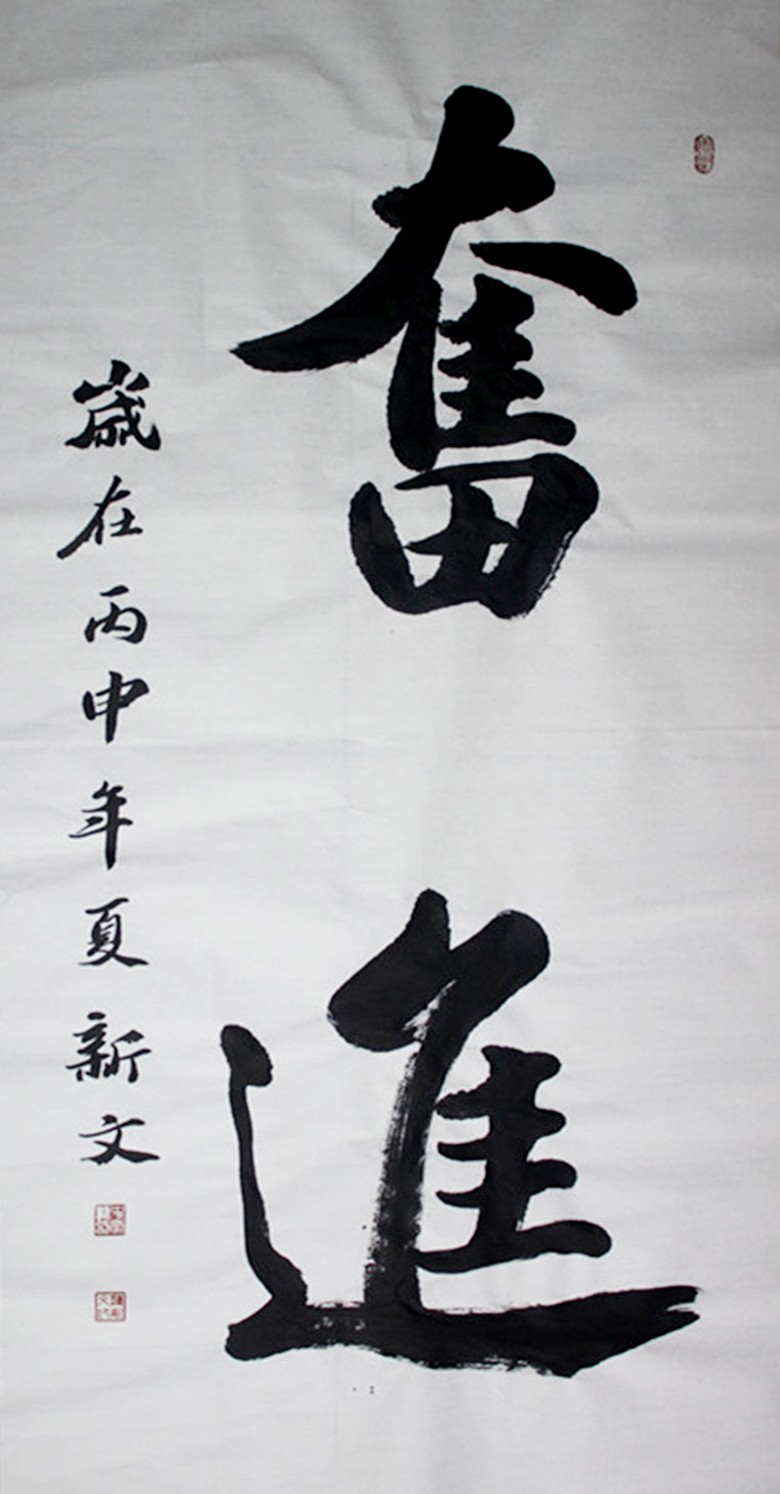 奮進
歳在丙申年夏新文